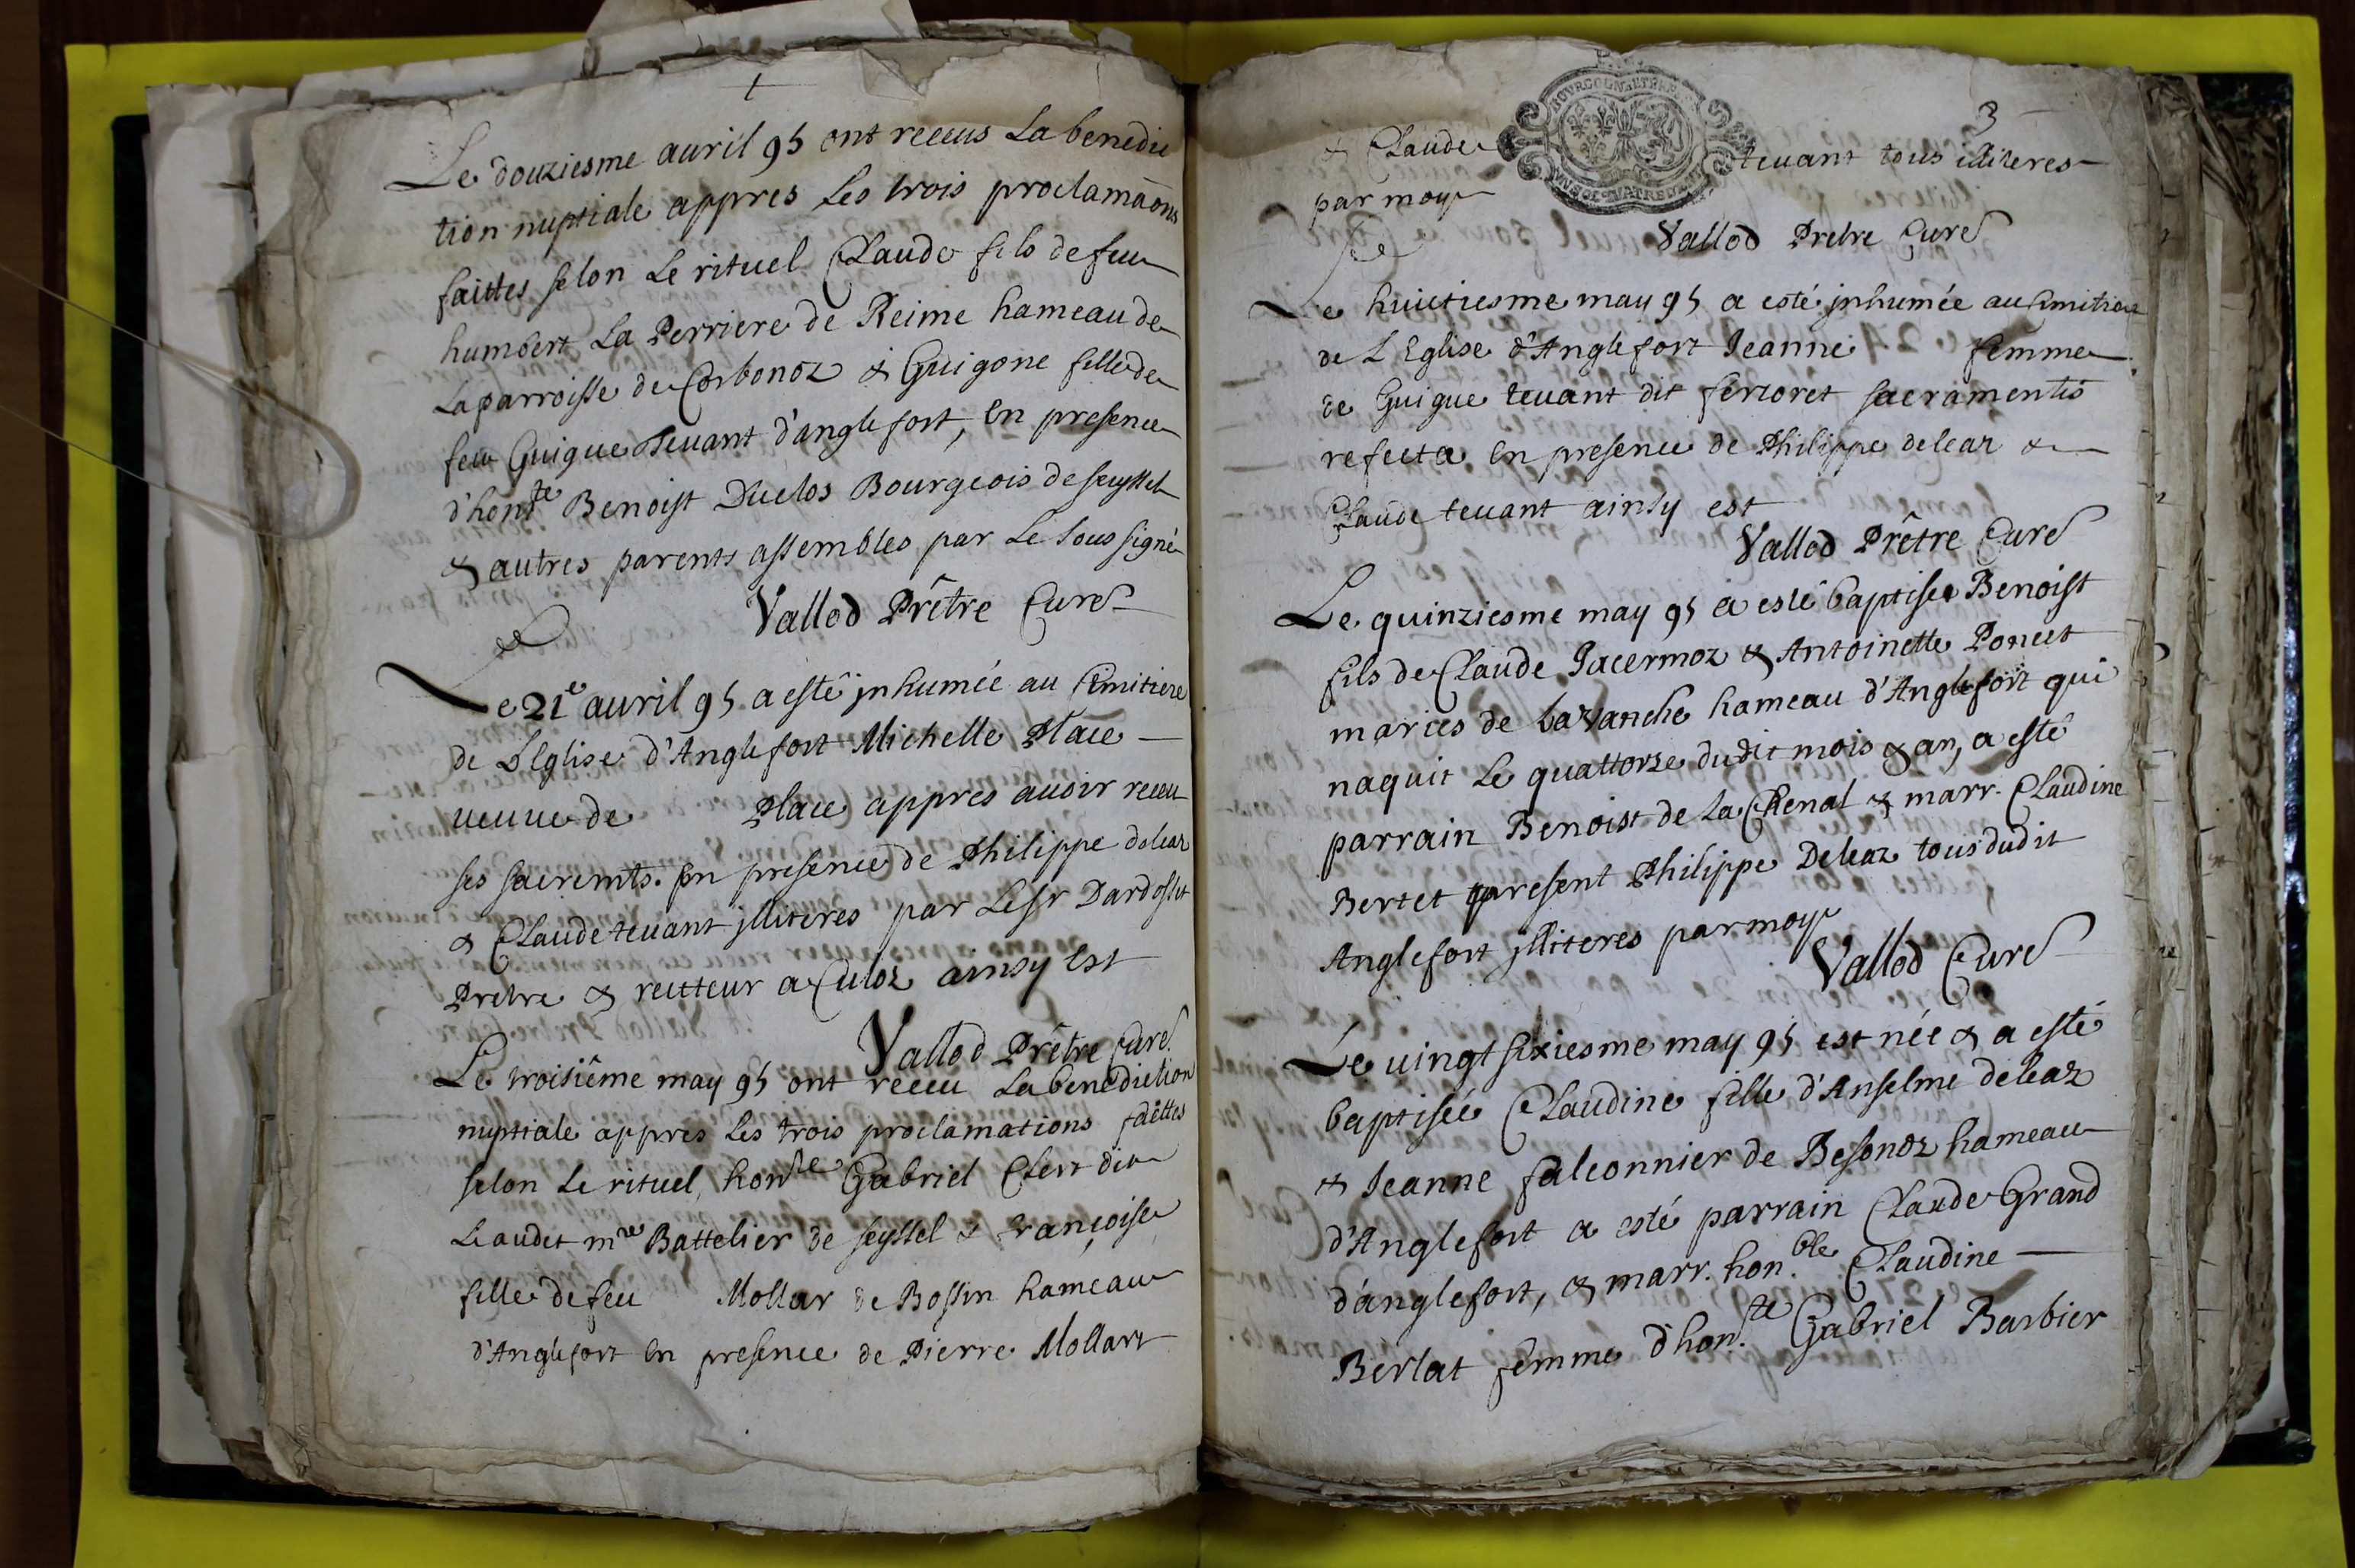 Le douziesme auril 95 ont receus La benedic
tion nuptiale appres Les trois proclamaōns
faittes selon Le rituel Claude fils de feu
humbert La Perriere de Reime hameau de
La parroisse de Corbonoz & Guigone fille de
feu Guigue Teuant d'anglefort, En presence
d'honste Benoist Duclos Bourgeois de seyssel
& autres parents assembles par Le sous signé
Vallod Prêtre Curé
Le 21e auril 95 a esté jnhumée au Cimitiere
de L'Eglise d'Anglefort Michelle Place
ueuue de Place appres auoir receu
ses sacremts. En presence de Philippe deleaz
& Claude teuant jlliteres par Le sr Dardosset
Prebre & recteur a Culoz ainsy Est
Vallod Prêtre Curé
Le troisiême may 95 ont receu La benediction
nuptiale appres Les trois proclamations faîttes
selon Le rituel, honste Gabriel Clert dit
Liaudet mre Battelier de seyssel & françoise
fille de feu Mollar de Bossin hameau
d'Anglefort En presence de Pierre Mollart
3
BOURGOGNE ET BRE
& Claude teuant tous illiteres
par moy
Vallod Prebre Curé
Le huictiesme may 95 a esté jnhumée au Cimitiere
de L'Eglise d'Anglefort Jeanne femme
de Guigue teuant dit ferroret sacramentis
refecta En presence de Philippe deleaz &
Claude teuant ainsy est
Vallod Prêtre Curé
Le quinziesme may 95 a esté baptise Benoist
fils de Claude Jacermoz & Antoinette Poncet
maries de Lavanche hameau d'Anglefort qui
naquit Le quattorze dudit mois & an, a esté
parrain Benoist de La Chenal & marr. Claudine
Bertet present Philippe Deleaz tous dudit
Anglefort jlliteres par moy
Vallod Curé
Le uingt sixiesme may 95 est née & a esté
baptisée Claudine fille d'Anselme deleaz
& Jeanne falconnier de Besonoz hameau
d'Anglefort a esté parrain Claude Grand
d'anglefort, & marr. hon.ble Claudine
Berlat femme d'hon.ste Gabriel Barbier